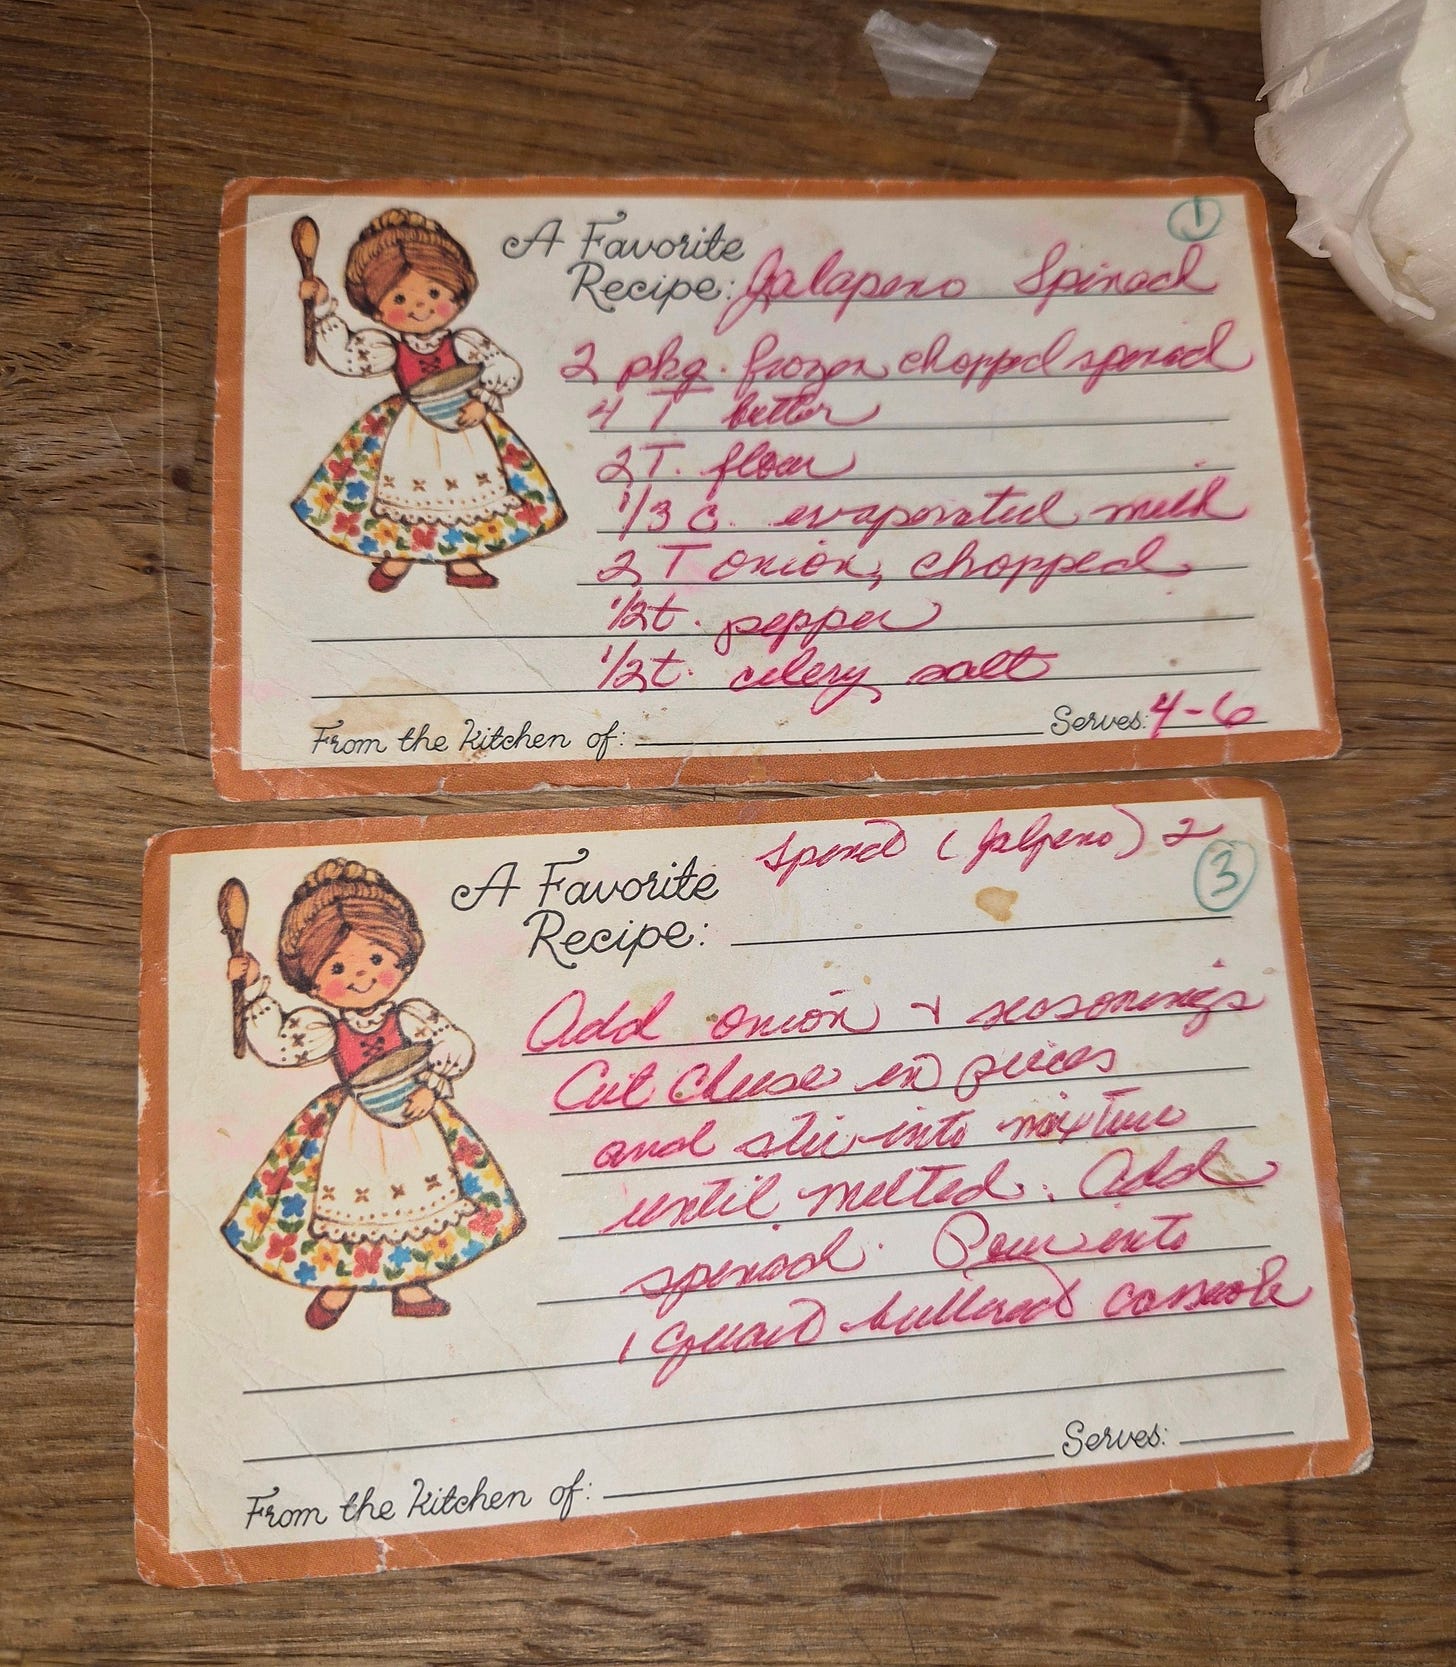 1
A Favorite
Recipe: Jalapeno Spinach
2 pkg. frozen chopped spinach
4 T butter
2 T. flour
1/3 c. evaporated milk
2 T onion, chopped
1/2 t. pepper
1/2 t. celery salt
From the Kitchen of:
Serves: 4-6
Spinach (Jalpeno) 2
3
A Favorite
Recipe:
Add onion + seasonings
Cut Cheese in pieces
and stir into mixture
until melted. Add
spinach. Pour into
1 quart buttered casserole
Serves:
From the Kitchen of: